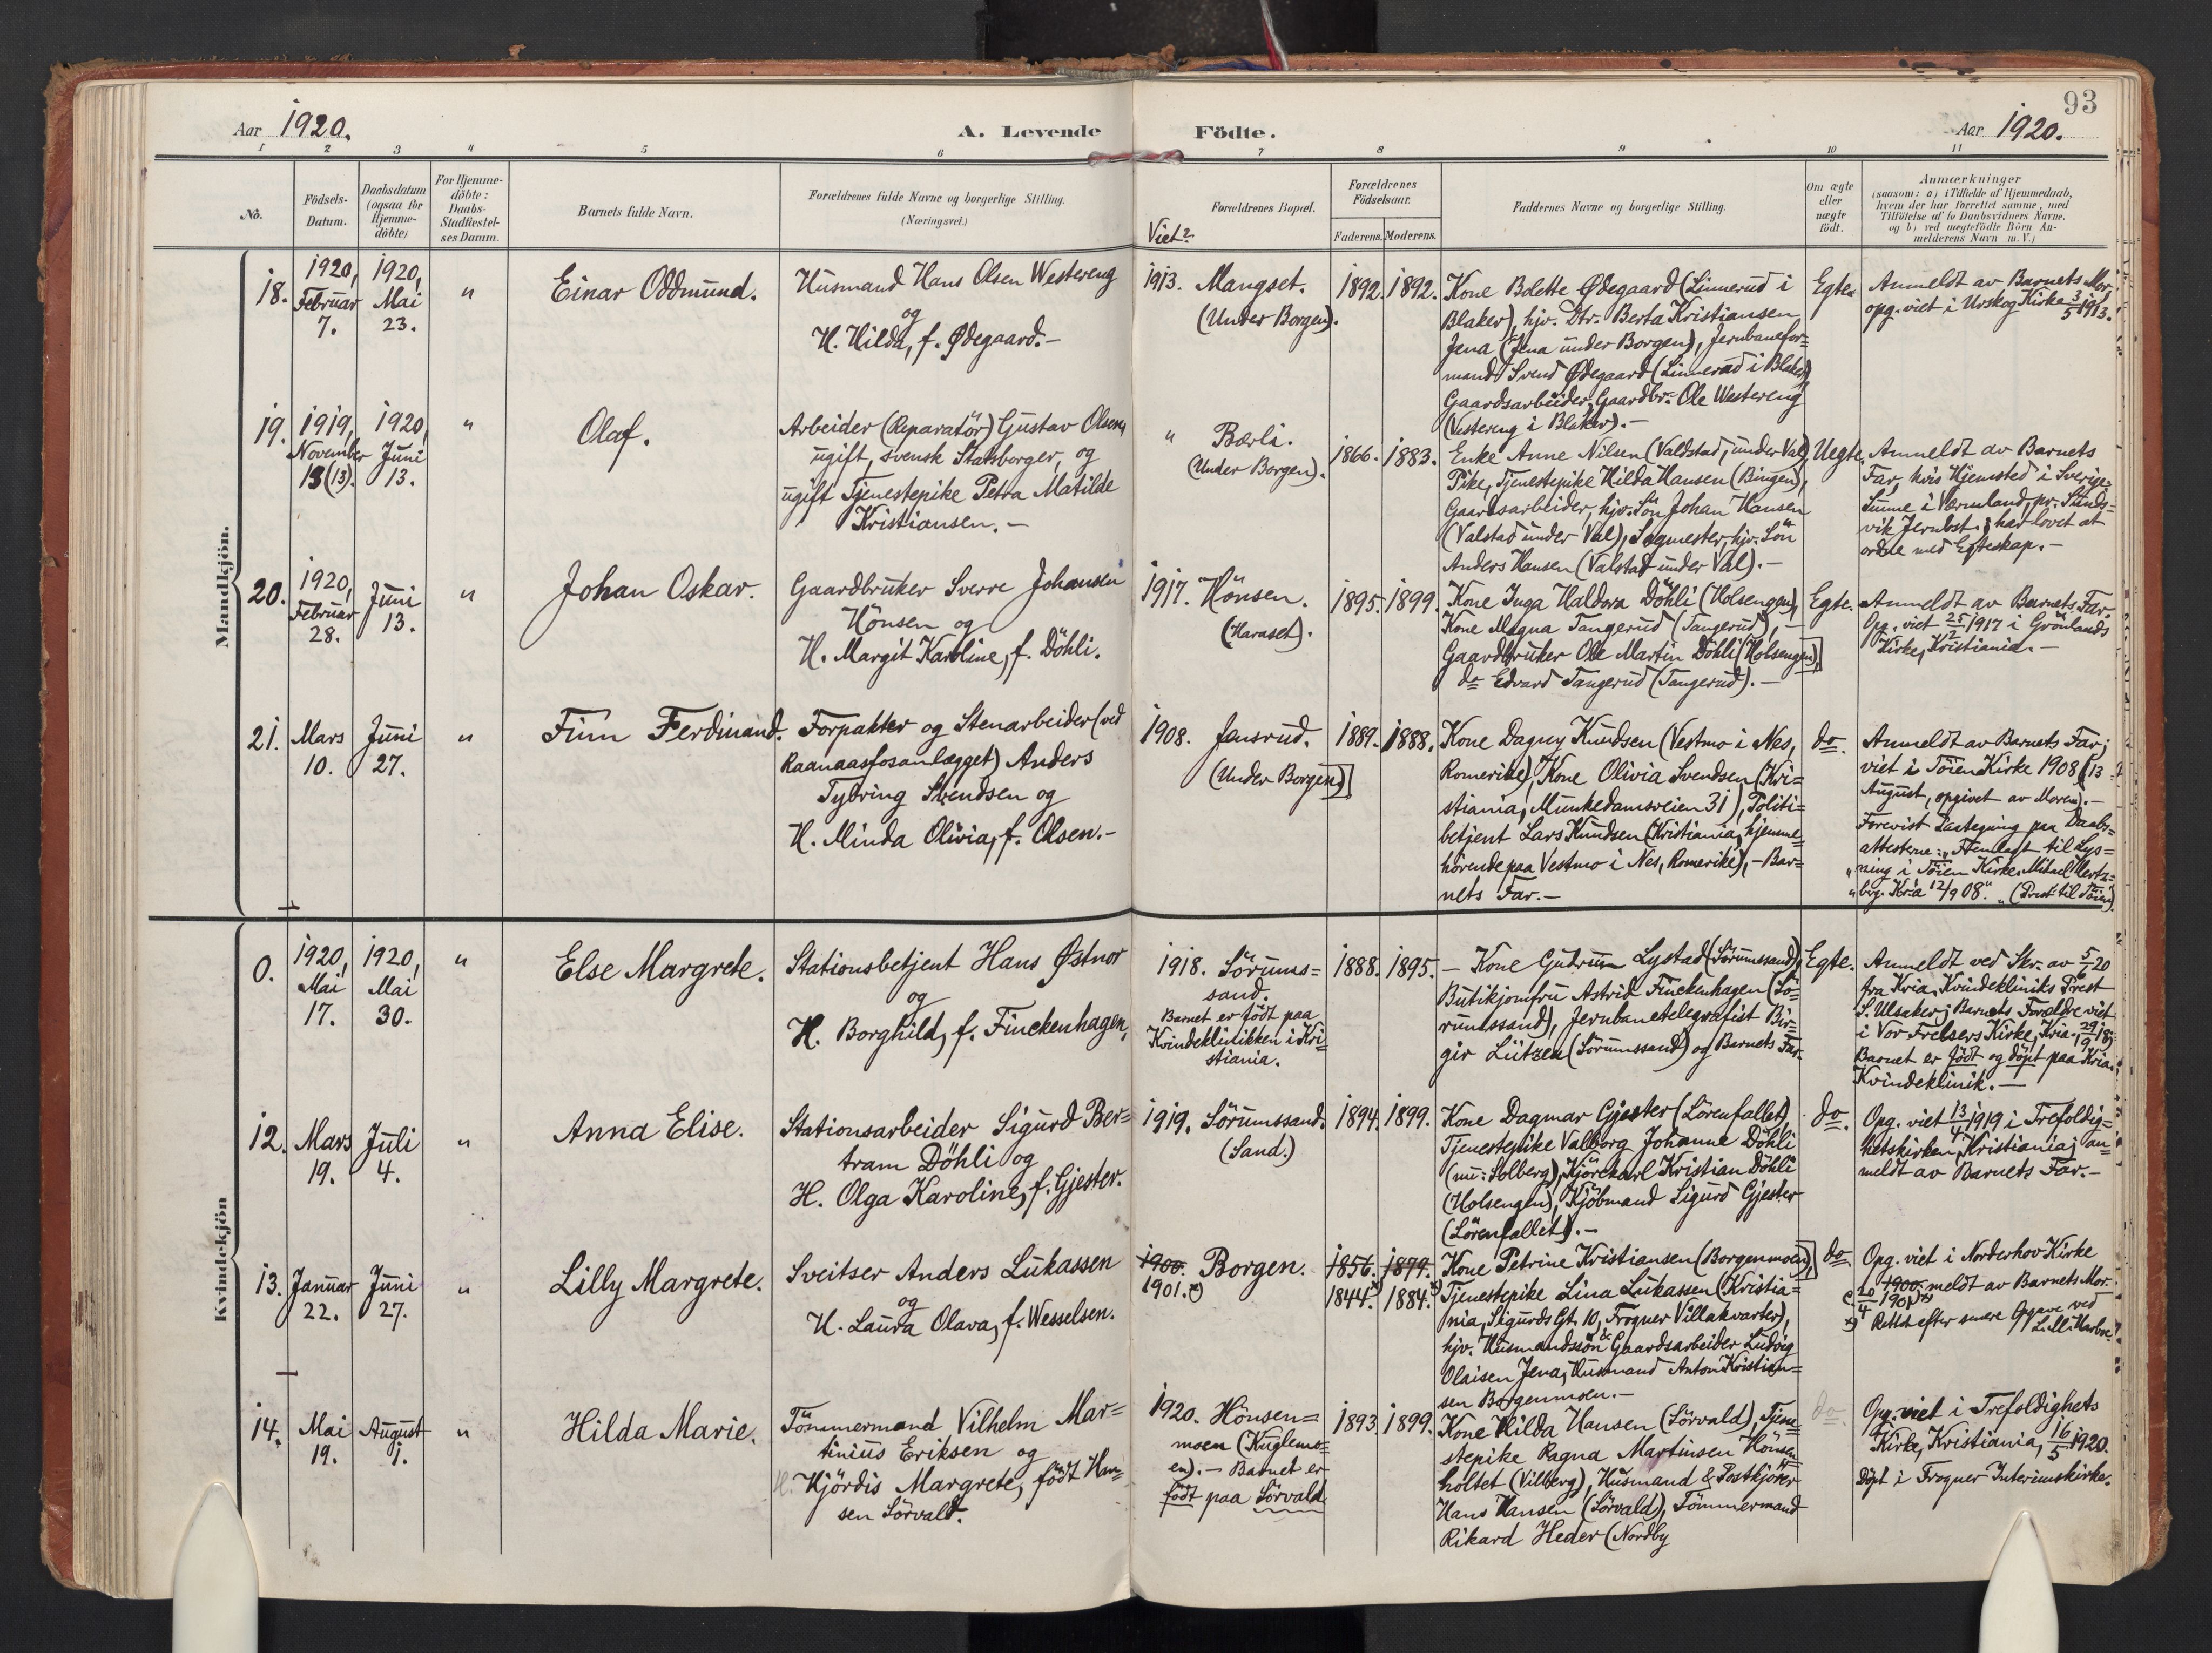 93
Aar 1920.
A. Levende Födte.
Aar 1920.
1 2 3 4 5 6 7 8 9 10 11
No.
Födsels-
Datum.
Daabsdatum
(ogsaa for
Hjemme-
döbte)
For Hjemme-
döbte:
Daabs-
Stadfæstel-
ses Datum.
Barnets fulde Navn.
Forældrenes fulde Navne og borgerlige Stilling.
(Næringsvei.)
Viet?
Forældrenes Bopæl.
Forældrenes
Födselsaar.
Faderens. Moderens.
Faddernes Navne og borgerlige Stilling.
Om ægte
eller
uægte
født.
Anmærkninger
(saasom: a) i Tilfælde af Hjemmedaab,
hvem der har forrettet samme, med
Tilföielse af to Daabsvidners Navne.
og b) ved uægtefödte Börn An-
melderens Navn m. V.)
Mandkjön.
18.
1920,
Februar
7.
1920,
Mai
23.
"
Einar Oddmund.
Husmand Hans Olsen Westereng
og
H. Hilda, f. Ødegaard.-
1913. Mangset.
(Under Borgen).
1892. 1892.
Kone Bolette Ødegaard (Linnerud i
Blaker), hjv. Dtr. Berta Kristiansen
Jena (Jena under Borgen), Jernbanefor=
mand Svend Ødegaard (Linnerud i Blaker)
Gaardsarbeider, Gaardbr. Ole Westereng
(Vestereng i Blaker).-
Egte
Anmeldt av Barnets Mor,
opg. viet i Urskog Kirke 3/5 1913.
19.
1919,
November
13 (13).
1920,
Juni
13.
"
Olaf.
Arbeider (Reparatör) Gustav Olsen,
ugift, svensk Statsborger, og
ugift Tjenestepike Petra Matilde
Kristiansen.-
" Bærli.
(Under Borgen).
1866. 1883.
Enke Anne Nilsen (Valdstad, under Val)
Pike, Tjenestepike Hilda Hansen (Bingen),
Gaardsarbeider, hjv. Sön Johan Hansen
(Valstad under Val), Sagmester, hjv. Sön
Anders Hansen (Valstad under Val).-
Uegte.
Anmeldt av Barnets
Far, hvis Hjemsted i Sverige:
Sunne i Værmland, pr. Sunds=
vik Jernbst.; har lovet at
ordne med Egteskap.-
20.
1920,
Februar
28.
Juni
13.
"
Johan Oskar.
Gaardbruker Sverre Johansen
Hönsen og
H. Margit Karoline, f. Döhli.
1917. Hönsen.
(Haraset).
1895. 1899.
Kone Inga Haldora Döhli (Holsengen),
Kone Magna Tangerud (Tangerud),
Gaardbruker Ole Martin Döhli (Holsengen),
do Edvard Tangerud (Tangerud).-
Egte.
Anmeldt av Barnets Far.
Opg. viet 25/2 1917 i Grönlands
Kirke, Kristiania.-
21.
Mars
10.
Juni
27.
"
Finn Ferdinand.
Forpakter og Stenarbeider (ved
Raanaasfosanlægget) Anders
Tybring Svendsen og
H. Minda Olivia, f. Olsen.-
1908. Jensrud.
(Under Borgen)
1889. 1888.
Kone Dagny Knudsen (Vestmo i Nes,
Romerike), Kone Olivia Svendsen (Kri=
stiania, Munkedamsveien 31), Politi=
betjent Lars Knudsen (Kristiania, hjemme=
hörende paa Vestmo i Nes, Romerike),- Bar=
nets Far.-
do.
Anmeldt av Barnets Far;
viet i Töien Kirke 1908 (13
August, opgivet av Moren).-
Forevist Paategning paa Daabs=
attesterne: "Fremlagt til Lys=
"ning i Töien Kirke. Mikael Hertz=
"berg. Kria 12/9 08." (Prest til Töien).
Kvindekjön
0.
1920,
Mai
17.
1920,
Mai
30.
"
Else Margrete.
Stationsbetjent Hans Østnor
og
H. Borghild, f. Finckenhagen,
1918. Sörums=
sand.
Barnet er födt paa
Kvindeklinikken i Kri=
stiania.
1888. 1895.
- Kone Gudrun Lystad (Sörumssand),
Butikjomfru Astrid Finckenhagen (Sö=
rumssand), Jernbanetelegrafist Bir=
gir Lützen (Sörumssand) og Barnets Far.
Egte.
Anmeldt ved Skr. av 5/6 20
fra Kria Kvindekliniks Prest
S. Ulsaker; Barnets Forældre viet
i Vor Frelsers Kirke, Kria. 29/9 18;
Barnet er födt og döpt paa Kria
Kvindeklinik.-
12.
Mars
19.
Juli
4.
"
Anna Elise.
Stationsarbeider Sigurd Ber=
tram Döhli og
H. Olga Karoline, f. Gjester.
1919. Sörumssand.
(Sand.)
1894. 1899.
Kone Dagmar Gjester (Lörenfallet),
Tjenestepike Valborg Johanne Döhli
(nu: Solberg), Kjörekarl Kristian Döhli
(Holsengen), Kjöbmand Sigurd Gjester
(Lörenfallet).-
do.
Opg. viet 13/4 1919 i Trefoldig=
hetskirken, Kristiania; an=
meldt av Barnets Far.-
13.
Januar
22.
Juni
27.
"
Lilly Margrete.
Sveitser Anders Lukassen
og
H. Laura Olava, f. Wesselsen.
1900. Borgen.
1901. x)
1856. 1879.
1844. 1884. x)
Kone Petrine Kristiansen (Borgenmoen)
Tjenestepike Lina Lukassen (Kristia=
nia, Sigurds Gt. 10, Frogner Villakvarter),
hjv. Husmandssön & Gaardsarbeider Ludvig
Olaisen Jena, Husmand Anton Kristian=
sen Borgenmoen.-
do
Opg. viet i Norderhov Kirke
1900. meldt av Barnets Mor.
20/4 1901 x)
x) Rettet efter senere Opgave ved
14.
Mai
19.
August
1.
"
Hilda Marie.
Tömmermand Vilhelm Mar=
tinius Eriksen og
H. Hjördis Margrete, födt Han=
sen Sörvald.
1920. Hönsen=
moen (Kuglemo=
en).- Barnet er
födt paa Sörvald
1893. 1899.
Kone Hilda Hansen (Sörvald), Tjene
stepike Ragna Martinsen Hönsen
holtet (Vilberg), Husmand & Postkjörer
Hans Hansen (Sörvald), Tömmermand
Rikard Heder (Nordby
do.
Opg. viet i Trefoldighets
Kirke, Kristiania, 16/5 1920.
Döpt i Frogner Interimskirke.